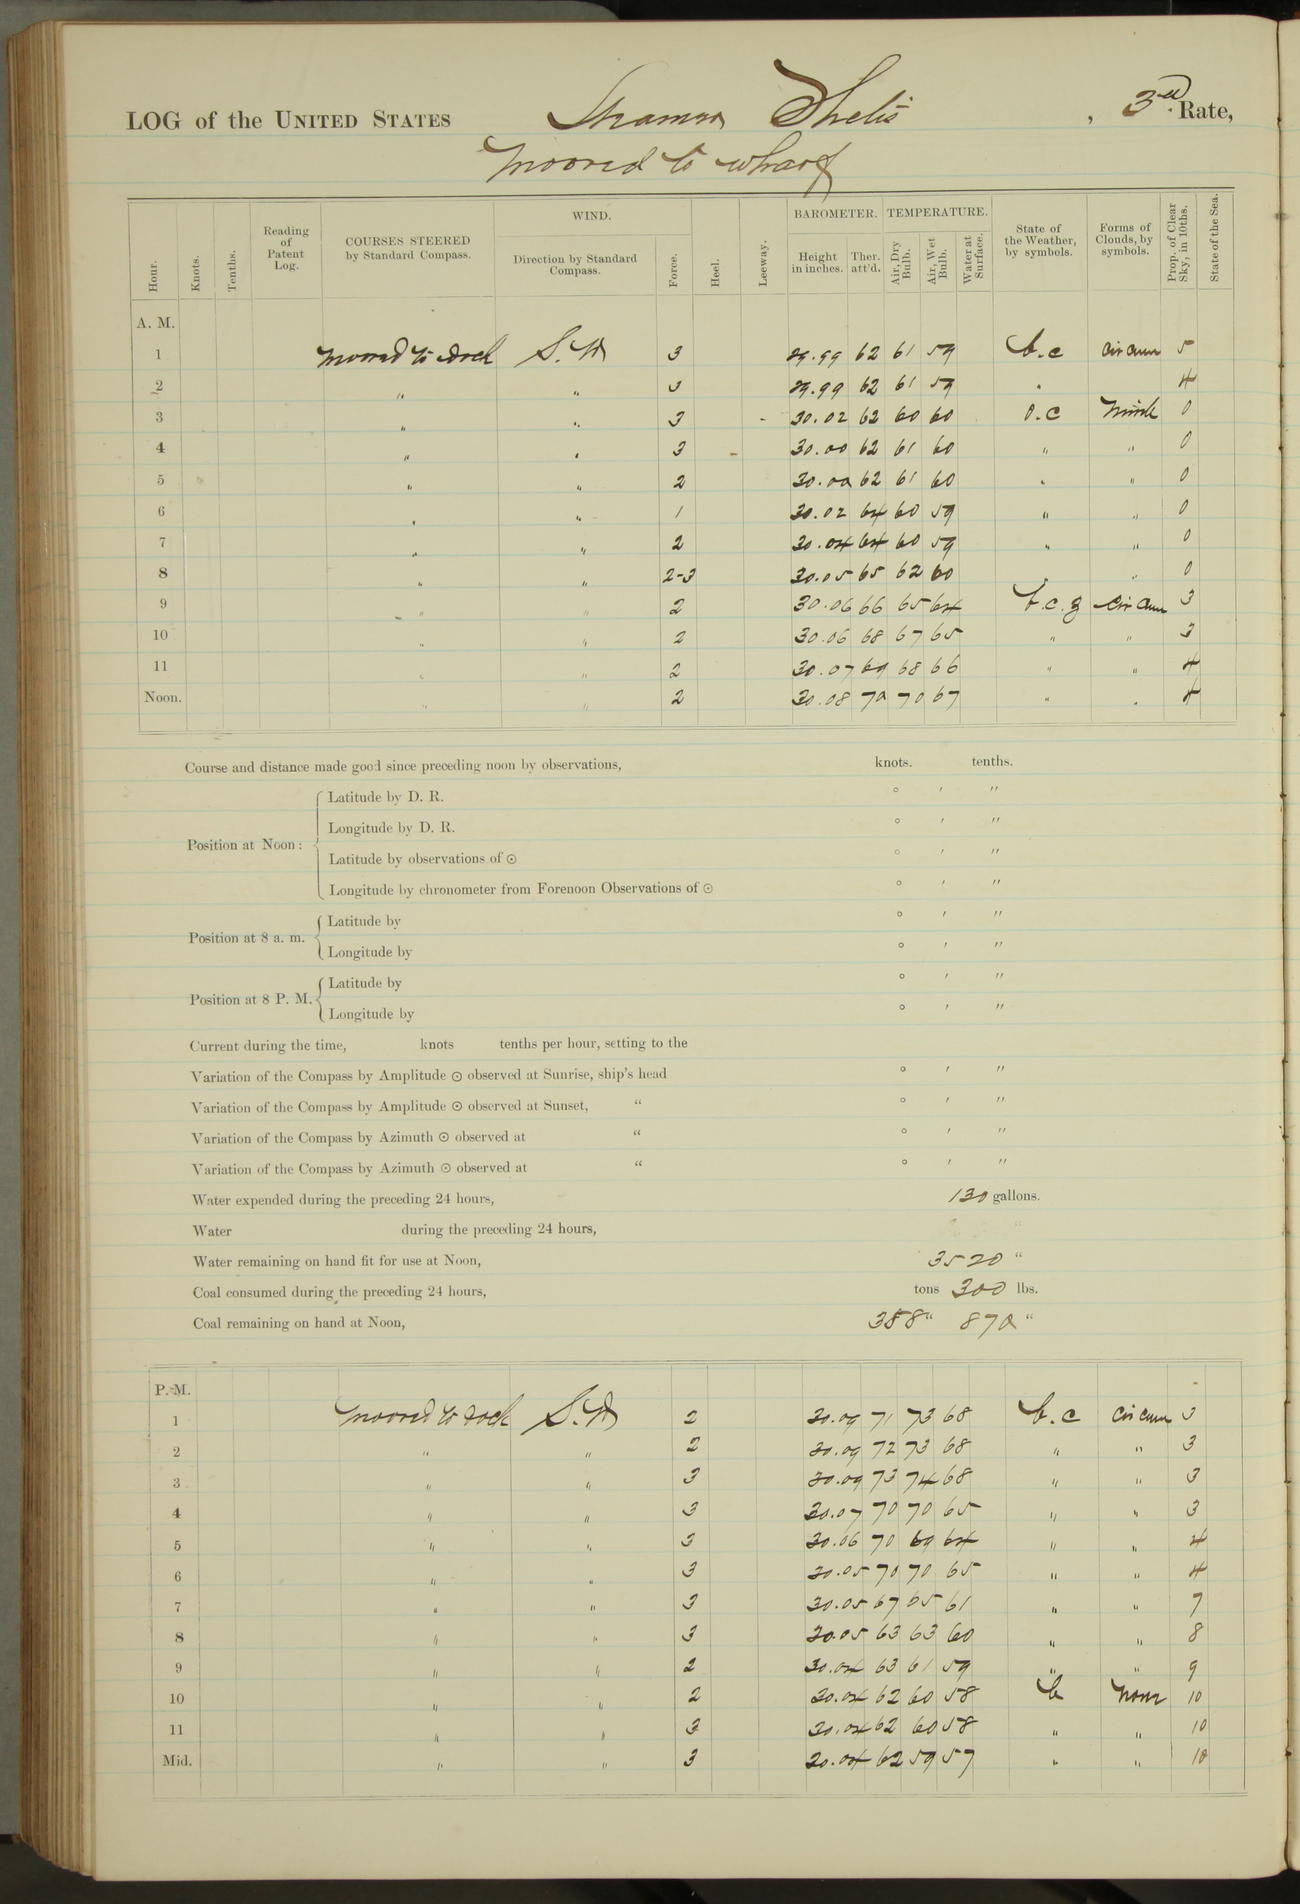 LOG of the UNITED STATES Steamer Thetis, 3rd Rate,
Moored to wharf
Hour. Knots. Tenths. Reading of Patent Log. COURSES STEERED by Standard Compass. WIND. Direction by Standard Compass. Force. Heel. Leeway. BAROMETER. Height in inches. Ther. att'd. TEMPERATURE. Air, Dry Bulb. Air, Wet Bulb. Water at Surface. State of the Weather, by symbols. Forms of Clouds, by symbols. Prop. of Clear Sky, in 10ths. State of the Sea.
A. M.
1 Moored to dock S.W 3 29.99 62 61 59 b.c cir cum 5
2 " " 3 29.99 62 61 59 " 4
3 " " 3 30.02 62 60 60 o.c Nimb 0
4 " " 3 30.00 62 61 60 " " 0
5 " " 2 30.00 62 61 60 " " 0
6 " " 1 30.02 64 60 59 " " 0
7 " " 2 30.04 64 60 59 " " 0
8 " " 2-3 30.05 65 62 60 " " 0
9 " " 2 30.06 66 65 64 b.c.g cir cum 3
10 " " 2 30.06 68 67 65 " " 3
11 " " 2 30.07 69 68 66 " " 4
Noon. " " 2 30.08 70 70 67 " " 4
Course and distance made good since preceding noon by observations, knots. tenths.
Position at Noon: Latitude by D. R. ° ′ ″
Longitude by D. R. ° ′ ″
Latitude by observations of ⊙ ° ′ ″
Longitude by chronometer from Forenoon Observations of ⊙ ° ′ ″
Position at 8 a. m. Latitude by ° ′ ″
Longitude by ° ′ ″
Position at 8 P. M. Latitude by ° ′ ″
Longitude by ° ′ ″
Current during the time, knots tenths per hour, setting to the
Variation of the Compass by Amplitude ⊙ observed at Sunrise, ship's head ° ′ ″
Variation of the Compass by Amplitude ⊙ observed at Sunset, “ ° ′ ″
Variation of the Compass by Azimuth ⊙ observed at “ ° ′ ″
Variation of the Compass by Azimuth ⊙ observed at “ ° ′ ″
Water expended during the preceding 24 hours, 130 gallons.
Water during the preceding 24 hours, “
Water remaining on hand fit for use at Noon, 3520 “
Coal consumed during the preceding 24 hours, tons 300 lbs.
Coal remaining on hand at Noon, 388 “ 870 “
P. M.
1 Moored to dock S.W 2 30.09 71 73 68 b.c cir cum 3
2 " " 2 30.09 72 73 68 " " 3
3 " " 3 30.09 73 74 68 " " 3
4 " " 3 30.07 70 70 65 " " 3
5 " " 3 30.06 70 69 64 " " 4
6 " " 3 30.05 70 70 65 " " 4
7 " " 3 30.05 67 65 61 " " 7
8 " " 3 30.05 63 63 60 " " 8
9 " " 2 30.04 63 61 59 " " 9
10 " " 2 30.04 62 60 58 b None 10
11 " " 3 30.04 62 60 58 " " 10
Mid. " " 3 30.04 62 59 57 " " 10